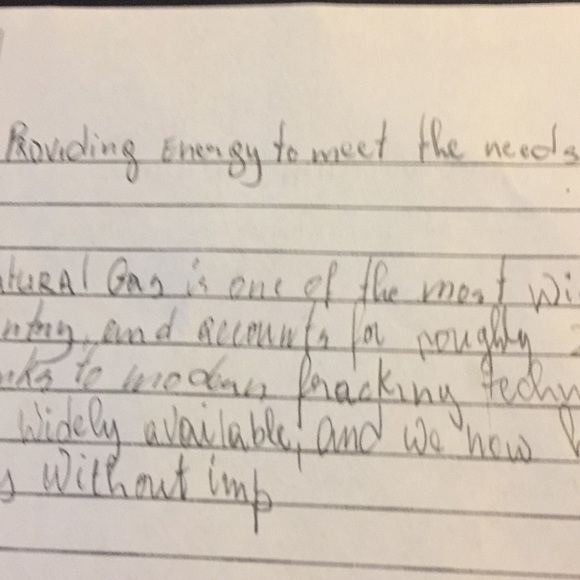 Providing Energy to meet the needs
tural Gas is one of the most wi
ntry, and accounts for roughly
nks to modern fracking techn
widely available, and we now
s without imp